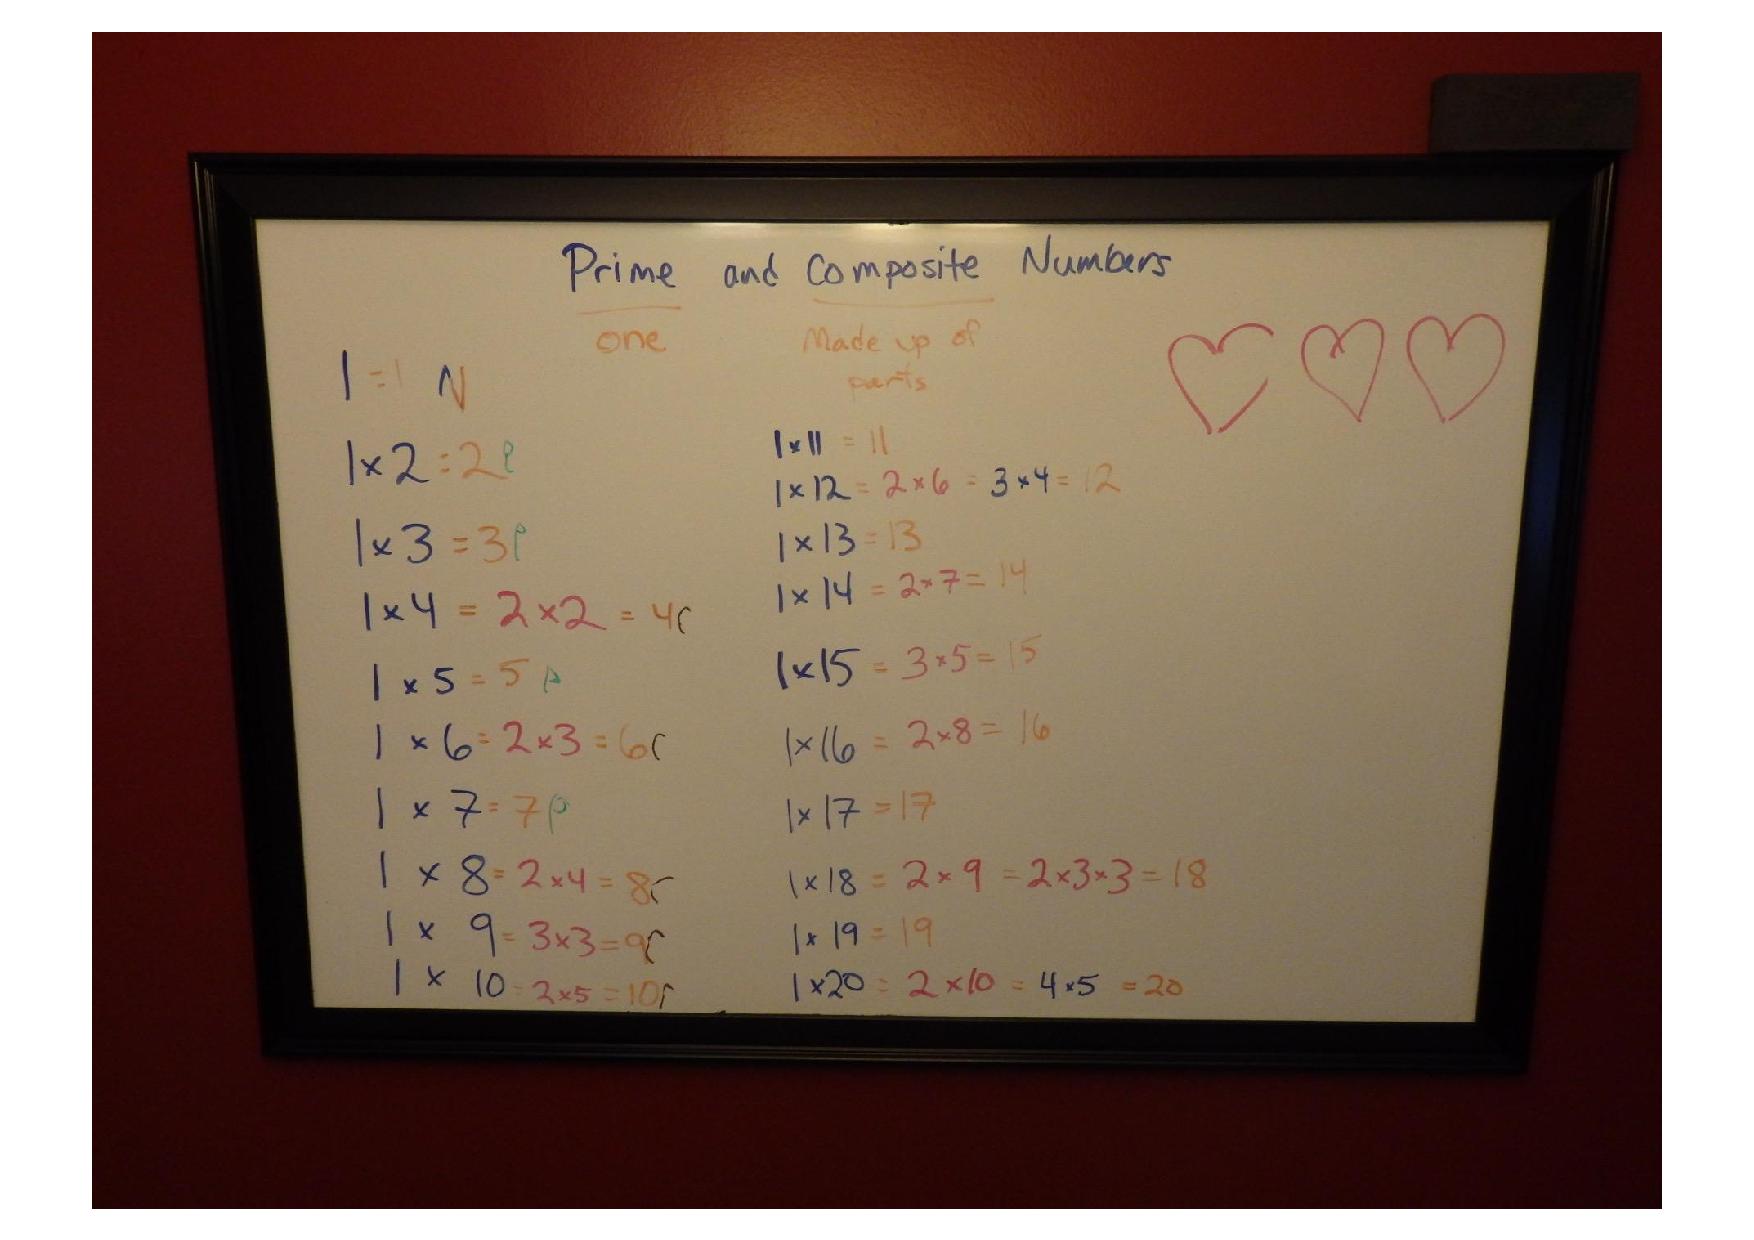 Prime and Composite Numbers
one
Made up of
parts
1 = 1 N
1 × 2 = 2 P
1 × 3 = 3 P
1 × 4 = 2 × 2 = 4 C
1 × 5 = 5 P
1 × 6 = 2 × 3 = 6 C
1 × 7 = 7 P
1 × 8 = 2 × 4 = 8 C
1 × 9 = 3 × 3 = 9 C
1 × 10 = 2 × 5 = 10 C
1 × 11 = 11
1 × 12 = 2 × 6 = 3 × 4 = 12
1 × 13 = 13
1 × 14 = 2 × 7 = 14
1 × 15 = 3 × 5 = 15
1 × 16 = 2 × 8 = 16
1 × 17 = 17
1 × 18 = 2 × 9 = 2 × 3 × 3 = 18
1 × 19 = 19
1 × 20 = 2 × 10 = 4 × 5 = 20